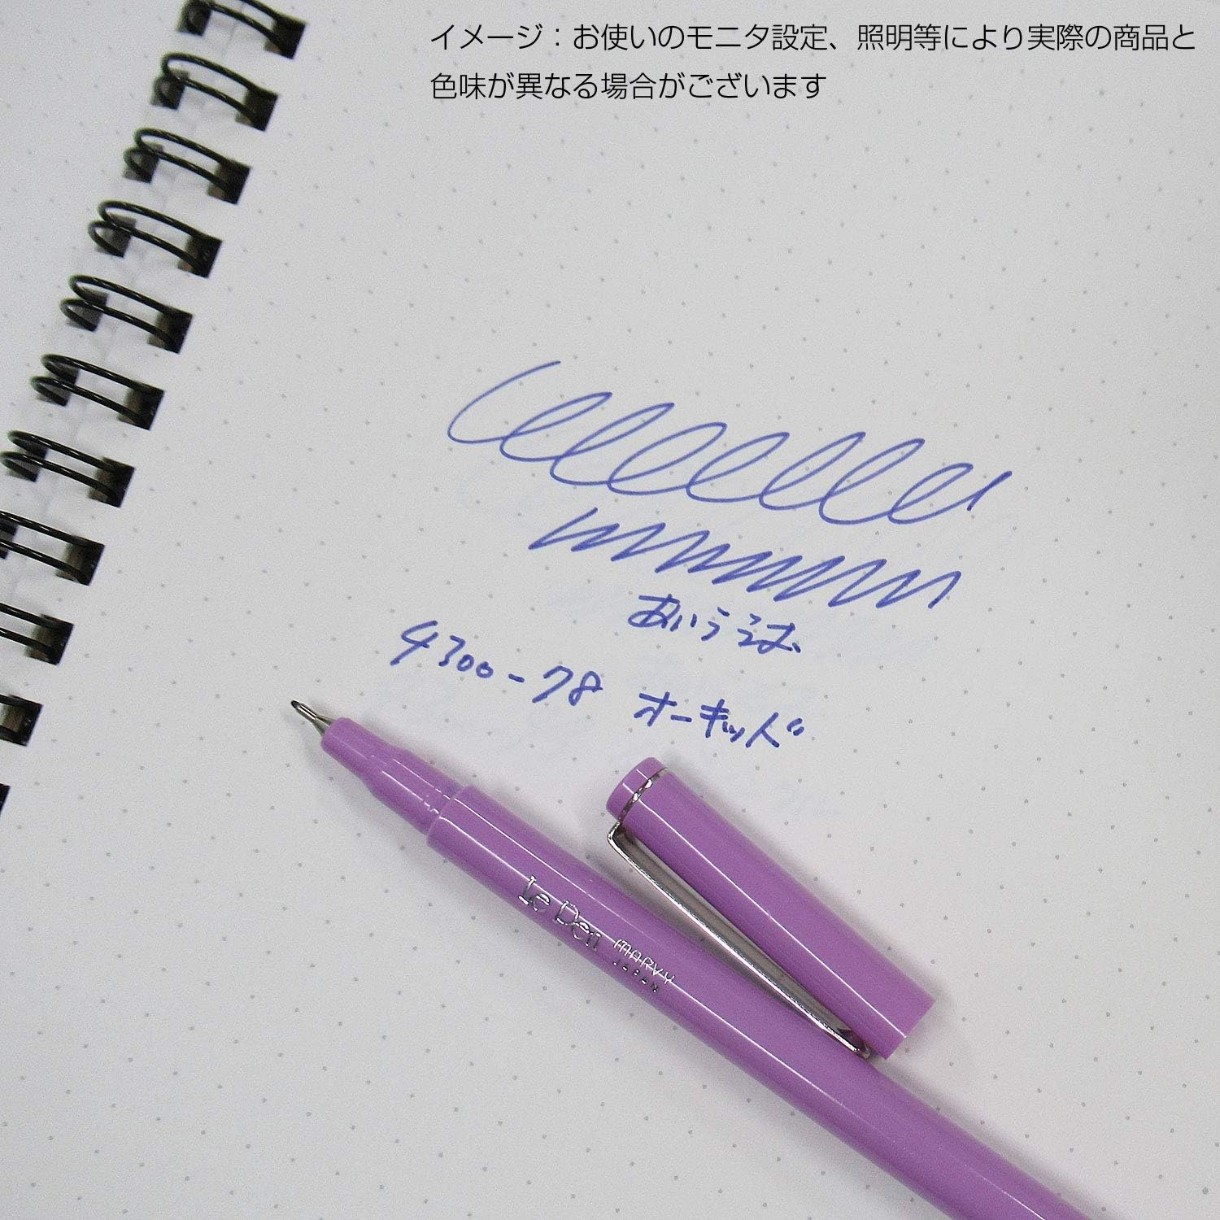 イメージ：お使いのモニタ設定、照明等により実際の商品と
色味が異なる場合がございます
あいうえお
4300-78 オーキッド
Le Pen MARVY
JAPAN